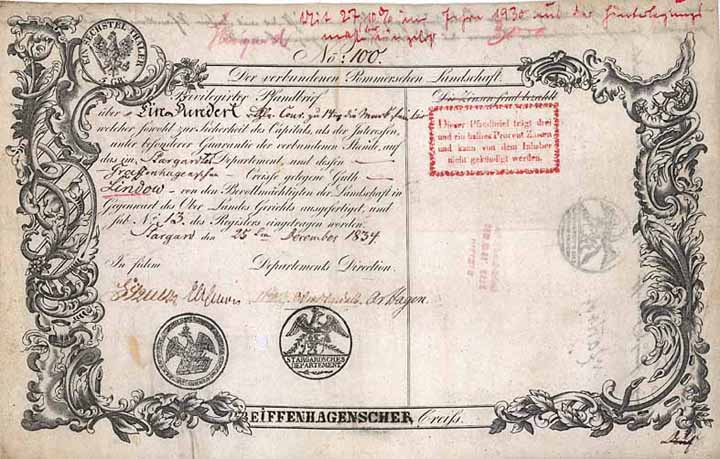 EIN SECHSTEL THALER
Mit 27,10% im Jahre 1930 aus der Hinterlegungs-
masse
Stargard
No: 100.
Der verbundenen Pommerschen Landschaft.
Privilegirter Pfandbrief
über Ein Hundert Thlr. Cour. zu 14 die Mark fein
welcher sowohl zur Sicherheit des Capitals, als der Interessen,
unter besonderer Guarantie der verbundenen Stände, auf
das im Stargardter Departement, und dessen
Greiffenhagenschen Creisse gelegene Guth
Lindow von den Bevollmächtigten der Landschaft in
Gegenwart des Ober-Landes Gerichts ausgefertiget, und
sub No. 13 des Registers eingetragen worden.
Stargard den 25ten December 1834.
In fidem Departements Direction.
Hagen.
STARGARDSCHES
DEPARTEMENT.
Die Zinsen sind bezahlt
Dieser Pfandbrief trägt drei
und ein halbes Procent Zinsen
und kann von dem Inhaber
nicht gekündigt werden.
EIFFENHAGENSCHER Creiß.